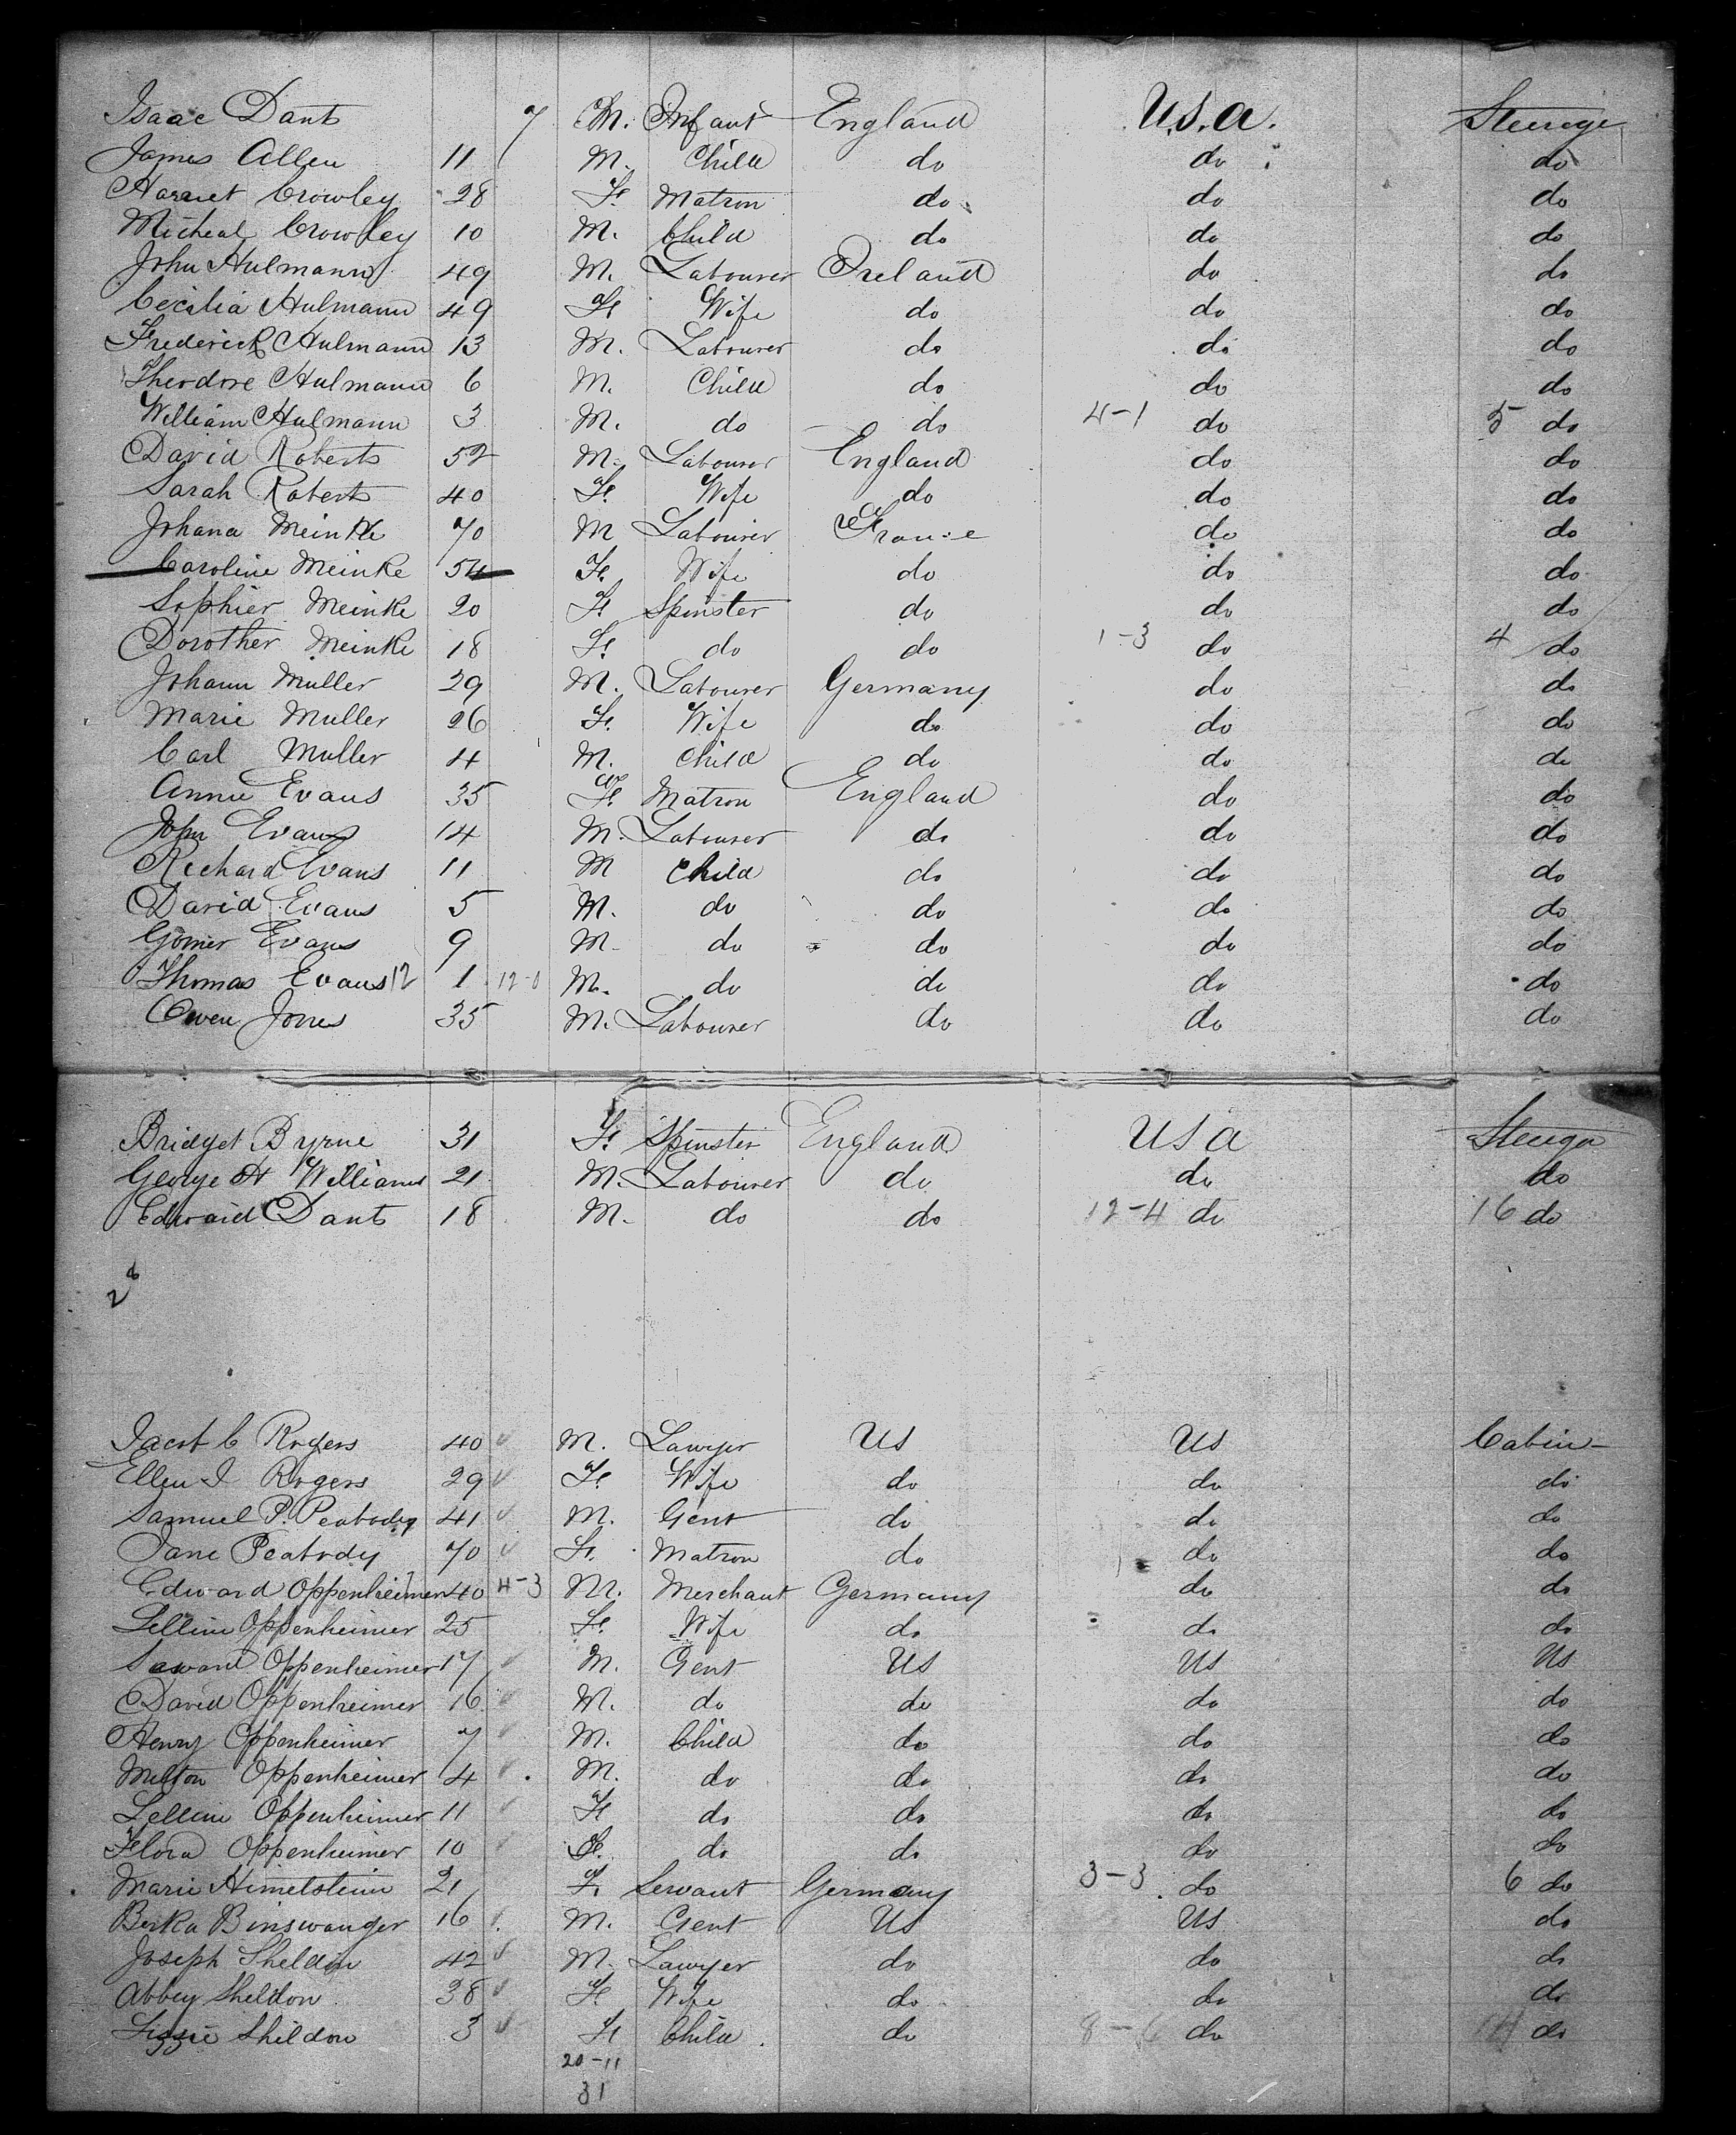 Isaac Dants 7 M. Infant England U.S.A. Steerage
James Allen 11 M. Child do do do
Harriet Crowley 28 F. Matron do do do
Micheal Crowley 10 M. Child do do do
John Hulmann 49 M. Labourer Ireland do do
Cecilia Hulmann 49 F. Wife do do do
Frederick Hulmann 13 M. Labourer do do do
Theodore Hulmann 6 M. Child do do do
William Hulmann 3 M. do do 4-1 do 5 do
David Roberts 52 M. Labourer England do do
Sarah Roberts 40 F. Wife do do do
Johana Meinke 70 M Labourer France do do
Caroline Meinke 54 F. Wife do do do
Sophier Meinke 20 F. Spinster do do do
Dorother Meinke 18 F. do do 1-3 do 4 do
Johann Muller 29 M. Labourer Germany do do
Marie Muller 26 F. Wife do do do
Carl Muller 4 M. Child do do do
Annie Evans 35 F. Matron England do do
John Evans 14 M. Labourer do do do
Richard Evans 11 M Child do do do
David Evans 5 M. do do do do
Gomer Evans 9 M. do do do do
Thomas Evans 12 1 12-0 M. do do do do
Owen Jones 35 M. Labourer do do do
Bridget Byrne 31 F. Spinster England USA Steerage
George H Williams 21 M. Labourer do do do
Edward Dants 18 M. do do 12-4 do 16 do
28
Jacob C Rogers 40 M. Lawyer US US Cabin
Ellen I Rogers 29 F. Wife do do do
Samuel P. Peabody 41 M. Gent do do do
Jane Peabody 70 F. Matron do do do
Edward Oppenheimer 40 4-3 M. Merchant Germany do do
Lelline Oppenheimer 25 F. Wife do do do
Oppenheimer 17 M. Gent US US US
David Oppenheimer 16 M. do do do do
Henry Oppenheimer 7 M. Child do do do
Milton Oppenheimer 4 M. do do do do
Lelline Oppenheimer 11 F. do do do do
Flora Oppenheimer 10 F. do do do do
Marie Himelsteiin 21 F. Servant Germany 3-3 do 6 do
Berka Binswanger 16 M. Gent US US do
Joseph Sheldon 42 M. Lawyer do do do
Abbey Sheldon 38 F. Wife do do do
Lizzie Sheldon 3 F. Child do 8-6 do 14 do
20-11
31